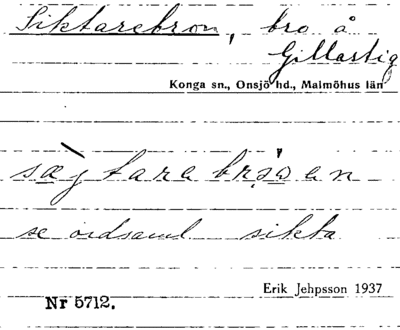 Siktarebron, bro å
Gillastig
Konga sn., Onsjö hd., Malmöhus län
se ordsaml sikta
Erik Jehpsson 1937
Nr 5712.